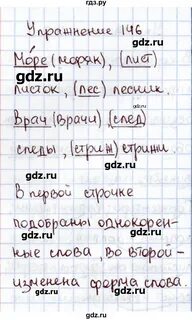 Упражнение 146
Море (моряк), (лист)
листок, (лес) лесник.
Врач (врачи) (след)
следы, (стриж) стрижи.
В первой строчке
подобраны однокорен-
ные слова, во второй -
изменена форма слова.